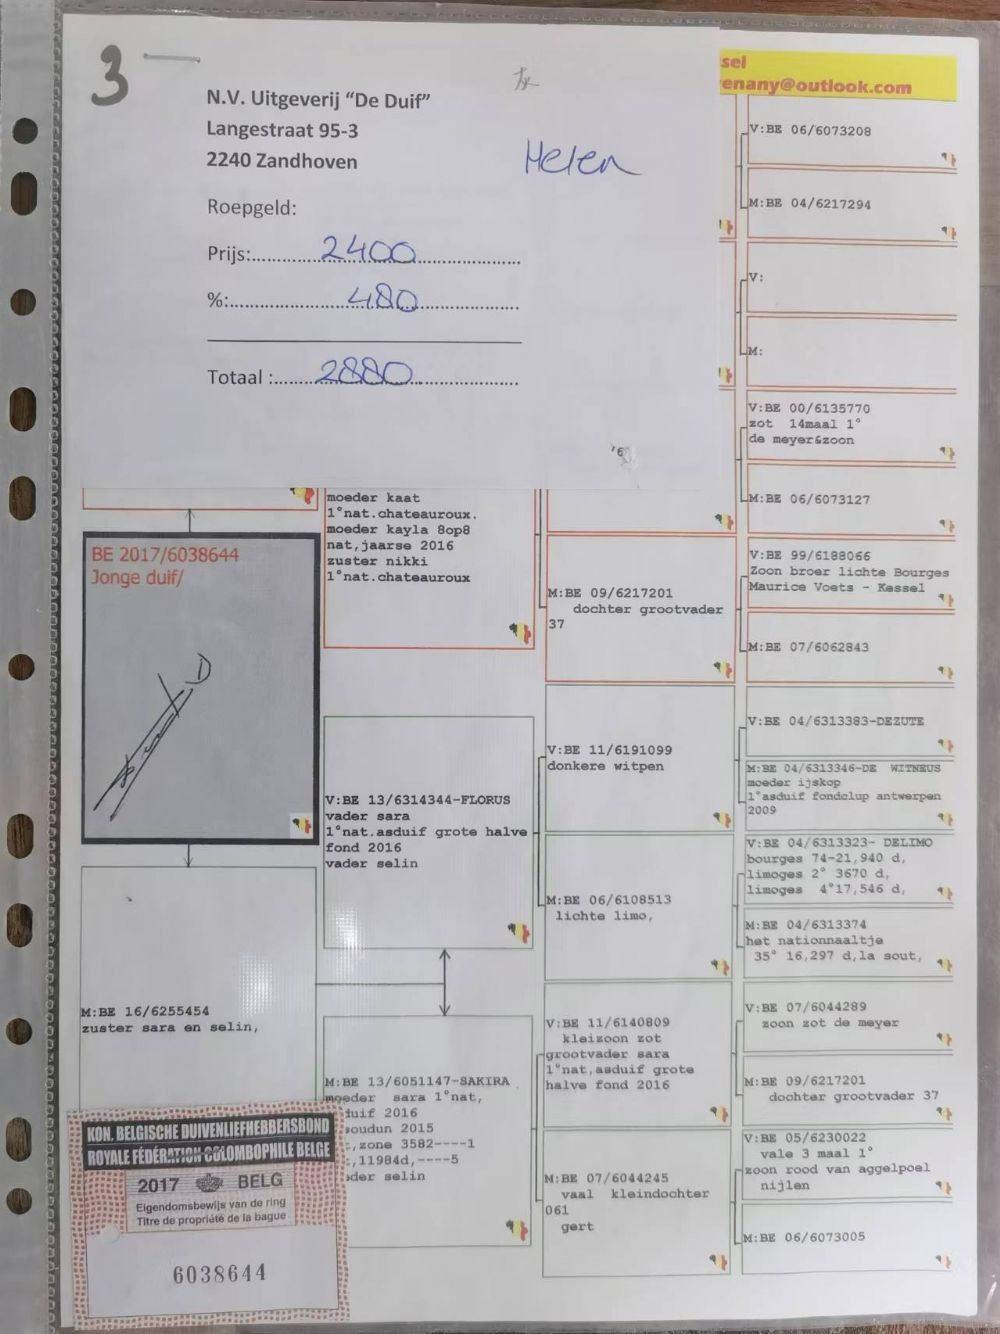 3
N.V. Uitgeverij “De Duif”
Langestraat 95-3
2240 Zandhoven
Helen
Roepgeld:
Prijs:..........2400..........
%:..........480..........
Totaal :..........2880..........
sel
enany@outlook.com
V:BE 06/6073208
M:BE 04/6217294
V:
M:
V:BE 00/6135770
zot 14maal 1°
de meyer&zoon
M:BE 06/6073127
V:BE 99/6188066
Zoon broer lichte Bourges
Maurice Voets - Kessel
M:BE 07/6062843
moeder kaat
1°nat.chateauroux.
moeder kayla 8op8
nat,jaarse 2016
zuster nikki
1°nat.chateauroux
M:BE 09/6217201
dochter grootvader
37
BE 2017/6038644
Jonge duif/
V:BE 13/6314344-FLORUS
vader sara
1°nat.asduif grote halve
fond 2016
vader selin
V:BE 11/6191099
donkere witpen
V:BE 04/6313383-DEZUTE
M:BE 04/6313346-DE WITNEUS
moeder ijskop
1°asduif fondclup antwerpen
2009
M:BE 06/6108513
lichte limo,
V:BE 04/6313323- DELIMO
bourges 74-21,940 d,
limoges 2° 3670 d,
limoges 4°17,546 d,
M:BE 04/6313374
het nationnaaltje
35° 16,297 d,la sout,
M:BE 16/6255454
zuster sara en selin,
M:BE 13/6051147-SAKIRA
moeder sara 1°nat,
duif 2016
soudun 2015
,zone 3582----1
,11984d,----5
der selin
V:BE 11/6140809
kleizoon zot
grootvader sara
1°nat,asduif grote
halve fond 2016
V:BE 07/6044289
zoon zot de meyer
M:BE 09/6217201
dochter grootvader 37
M:BE 07/6044245
vaal kleindochter
061
gert
V:BE 05/6230022
vale 3 maal 1°
zoon rood van aggelpoel
nijlen
M:BE 06/6073005
KON. BELGISCHE DUIVENLIEFHEBBERSBOND
ROYALE FÉDÉRATION COLOMBOPHILE BELGE
2017 BELG
Eigendomsbewijs van de ring
Titre de propriété de la bague
6038644